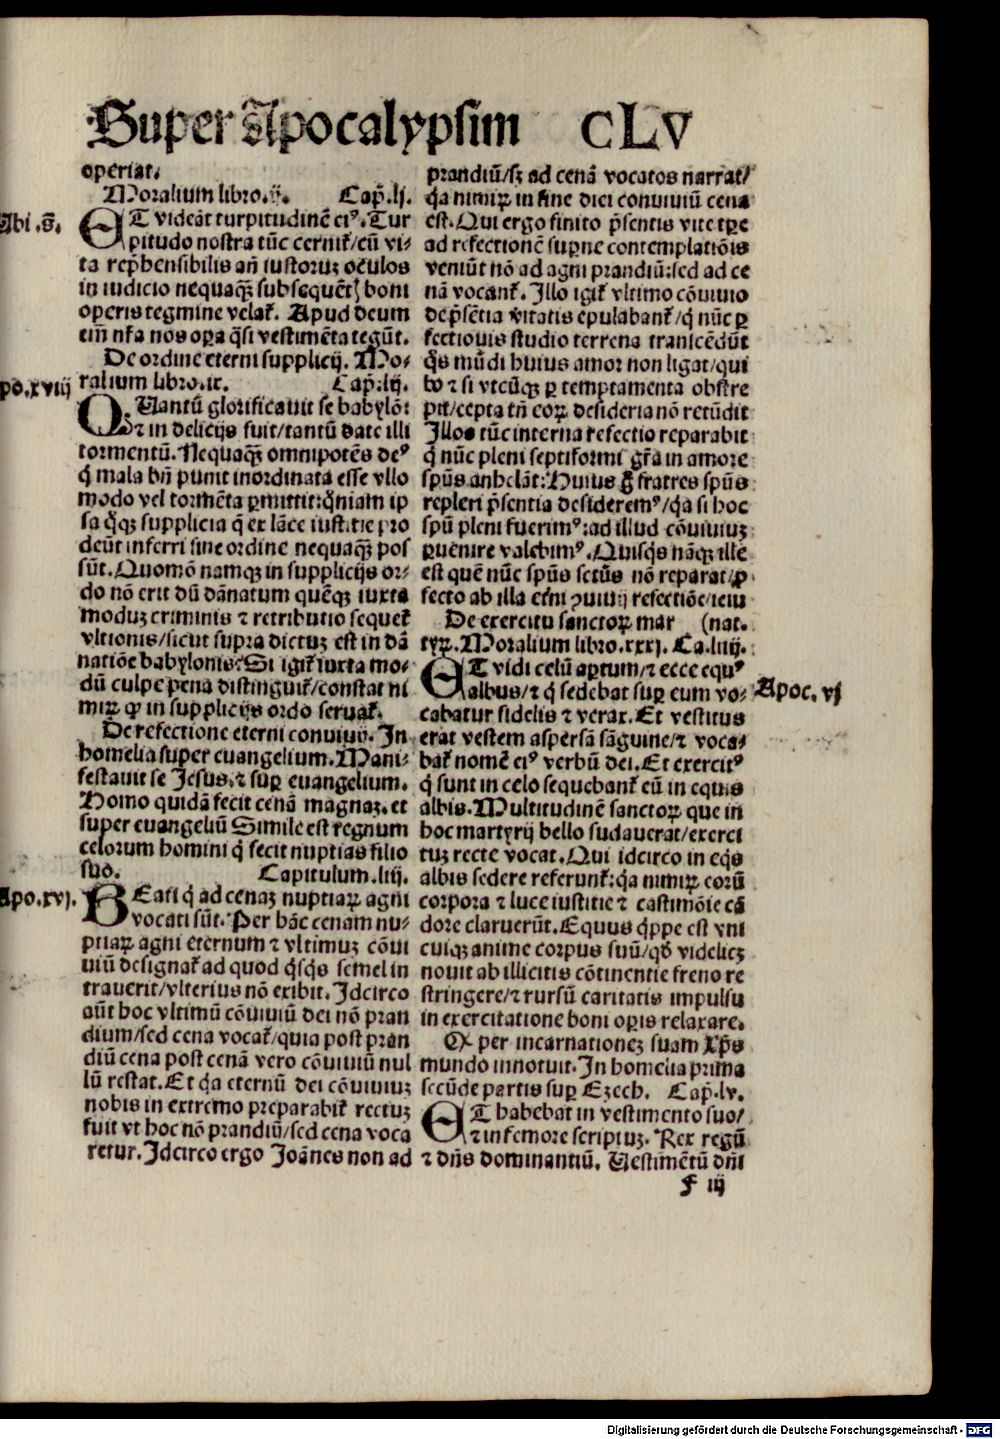 Super Apocalypsim CLV
operiat.
Moralium libro.ij. Cap̄.lj.
Ubi .s̄.
ET videāt turpitudinē eiꝰ. Tur
pitudo nostra tūc cernit᷑/cū vi-
ta rep̄hensibilis an̄ iustoruꝫ oculos
in iudicio nequaq̄ꝫ subsequēti boni
operis tegmine velat᷑. Apud deum
em̄ nr̄a nos oꝑa q̄si vestimēta tegūt.
De ordine eterni supplicij. Mo-
ralium libro.ix. Cap̄.lij.
po.xviij
QUantū glorificauit se babylō:
⁊ in delicijs fuit/tantū date illi
tormentū. Nequaq̄ꝫ omnipotēs deꝰ
q̄ mala bn̄ punit inordinata esse vllo
modo vel tormēta ꝑmittit:qm̄niam ip
sa q̄qꝫ supplicia q̄ ex lāce iustitie pro
deūt inferri sine ordine nequaq̄ꝫ pos
sūt. Quomō namqꝫ in supplicijs or-
do nō erit dū dānatum quēqꝫ iuxta
moduꝫ criminis ⁊ retributio sequet᷑
vltionis/sicut supra dictuꝫ est in dā
natiōe babylonis? Si igit᷑ iuxta mo-
dū culpe pena distinguit᷑/constat ni
miꝝ ꝙ in supplicijs ordo seruat᷑.
De refectione eterni conuiuij. In
homelia super euangelium. Mani-
festauit se Jesus. ⁊ suꝑ euangelium.
Homo quidā fecit cenā magnaꝫ. et
super euangeliū Simile est regnum
celorum homini q̄ fecit nuptias filio
suo. Capitulum.liij.
Apo.xvj.
BEati q̄ ad cenaꝫ nuptiaꝝ agni
vocati sūt. Per hāc cenam nu-
ptiaꝝ agni eternum ⁊ vltimuꝫ cōui
uiū designat᷑ ad quod q̄sq̄s semel in
trauerit/vlterius nō exibit. Idcirco
aūt hoc vltimū cōuiuiū dei nō pran
dium/sed cena vocat᷑/quia post pran
diū cena post cenā vero cōuiuiū nul
lū restat. Et q̄a eternū dei cōuiuiuꝫ
nobis in extremo preparabit᷑ rectuꝫ
fuit vt hoc nō prandiū/sed cena voca
retur. Idcirco ergo Joānes non ad
prandiū/sꝫ ad cenā vocatos narrat/
q̄a nimiꝝ in fine diei conuiuiū cena
est. Qui ergo finito p̄sentis vite tꝑe
ad refectionē suꝑne contemplatiōis
veniūt nō ad agni prandiū:sed ad ce
nā vocant᷑. Illo igit᷑ vltimo cōuiuio
de p̄sētia v̄itatis epulabant᷑/q̄ nūc ꝑ
fectionis studio terrena transcēdūt
q̄s mūdi huius amor non ligat/qui
bꝰ ⁊ si vtcūqꝫ ꝑ temptamenta obstre
pit/cepta tn̄ eoꝝ desideria nō retūdit
Illos tūc interna refectio reparabit
q̄ nūc pleni septiformi gr̄a in amore
spūs anhelāt: Huius g̊ fratres spūs
repleri p̄sentia desideremꝰ/q̄a si hoc
spū pleni fuerimꝰ:ad illud cōuiuiuꝫ
ꝑuenire valebimꝰ. Quisq̄s nāqꝫ ille
est quē nūc spūs sctūs nō reparat/ꝓ
fecto ab illa et̄ni ꝯuiuij refectiōe/ieiu
De exercitu sanctoꝝ mar (nat.
tyꝝ. Moralium libro.xxxj. Ca.liiij.
ET vidi celū aꝑtum/⁊ ecce equꝰ
albus/⁊ q̄ sedebat suꝑ eum vo-
Apoc. vj
cabatur fidelis ⁊ verax. Et vestitus
erat vestem aspersā sāguine/⁊ voca-
bat᷑ nomē eiꝰ verbū dei. Et exercitꝰ
q̄ sunt in celo sequebant᷑ eū in equis
albis. Multitudinē sanctoꝝ que in
hoc martyrij bello sudauerat/exerci
tuꝫ recte vocat. Qui idcirco in eq̄s
albis sedere referunt᷑:q̄a nimiꝝ eorū
corpora ⁊ luce iustitie ⁊ castimōie cā
dore claruerūt. Equus q̄ppe est vni
cuiqꝫ anime corpus suū/qđ videlicꝫ
nouit ab illicitis cōtinentie freno re
stringere/⁊ rursū caritatis impulsu
in exercitatione boni oꝑis relaxare.
Q per incarnationeꝫ suam Xp̄s
mundo innotuit. In homelia prima
secūde partis suꝑ Ezech. Cap̄.lv.
ET habebat in vestimento suo/
⁊ in femore scriptuꝫ. Rex regū
⁊ dn̄s dominantiū. Vestimētū dn̄i
f iij
Digitalisierung gefördert durch die Deutsche Forschungsgemeinschaft - DFG